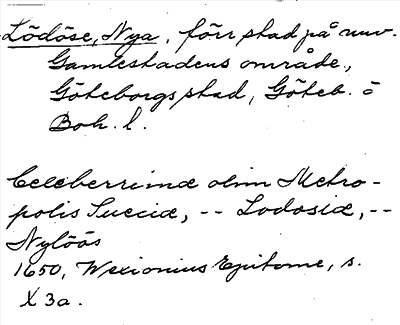 Lödöse, Nya, förr stad på nuv.
Gamlestadens område,
Göteborgs stad, Göteb. o
Boh. l.
Celeberrimæ olim Metro-
polis Sueciæ, -- Lodosiæ, --
Nylöös
1650, Wexionius Epitome, s.
X 3a.